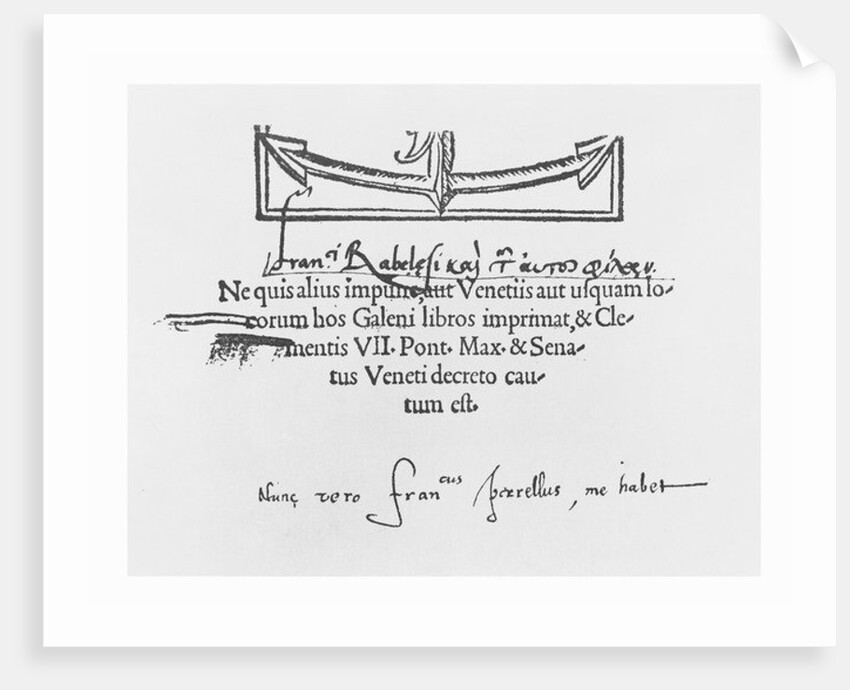 franci Rabelęsi καὶ τῶν αὐτοῦ φίλων.
Ne quis alius impune, aut Venetiis aut usquam lo-
corum hos Galeni libros imprimat, & Cle-
mentis VII. Pont. Max. & Sena-
tus Veneti decreto cau-
tum est.
Nunc vero francus , me habet